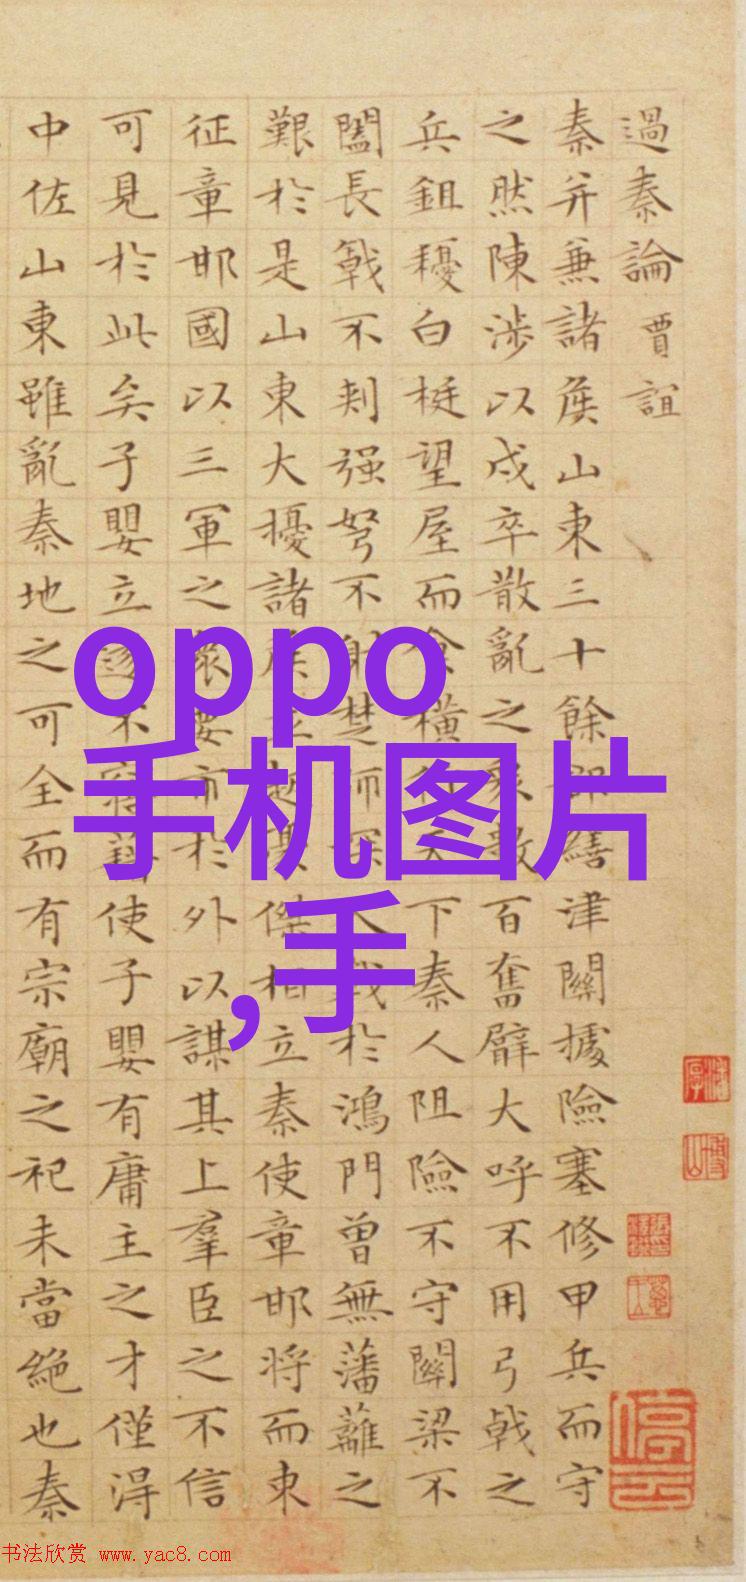 過秦論 賈誼
秦并兼諸侯山東三十餘郡繕津關據險塞修甲兵而守
之然陳涉以戍卒散亂之衆數百奮臂大呼不用弓戟之
兵鉏耰白梃望屋而食橫行天下秦人阻險不守關梁不
闔長戟不刺强弩不射楚師深入戰於鴻門曾無藩籬之
艱於是山東大擾諸侯並起傑相立秦使章邯将而東
征章邯國以三軍之衆要市於外以謀其上羣臣之不信
可見於此矣子嬰立遂不寤藉使子嬰有庸主之才僅得
中佐山東雖亂秦地之可全而有宗廟之祀未當絶也秦
oppo
手机图片
,手
书法欣赏 www.yac8.com